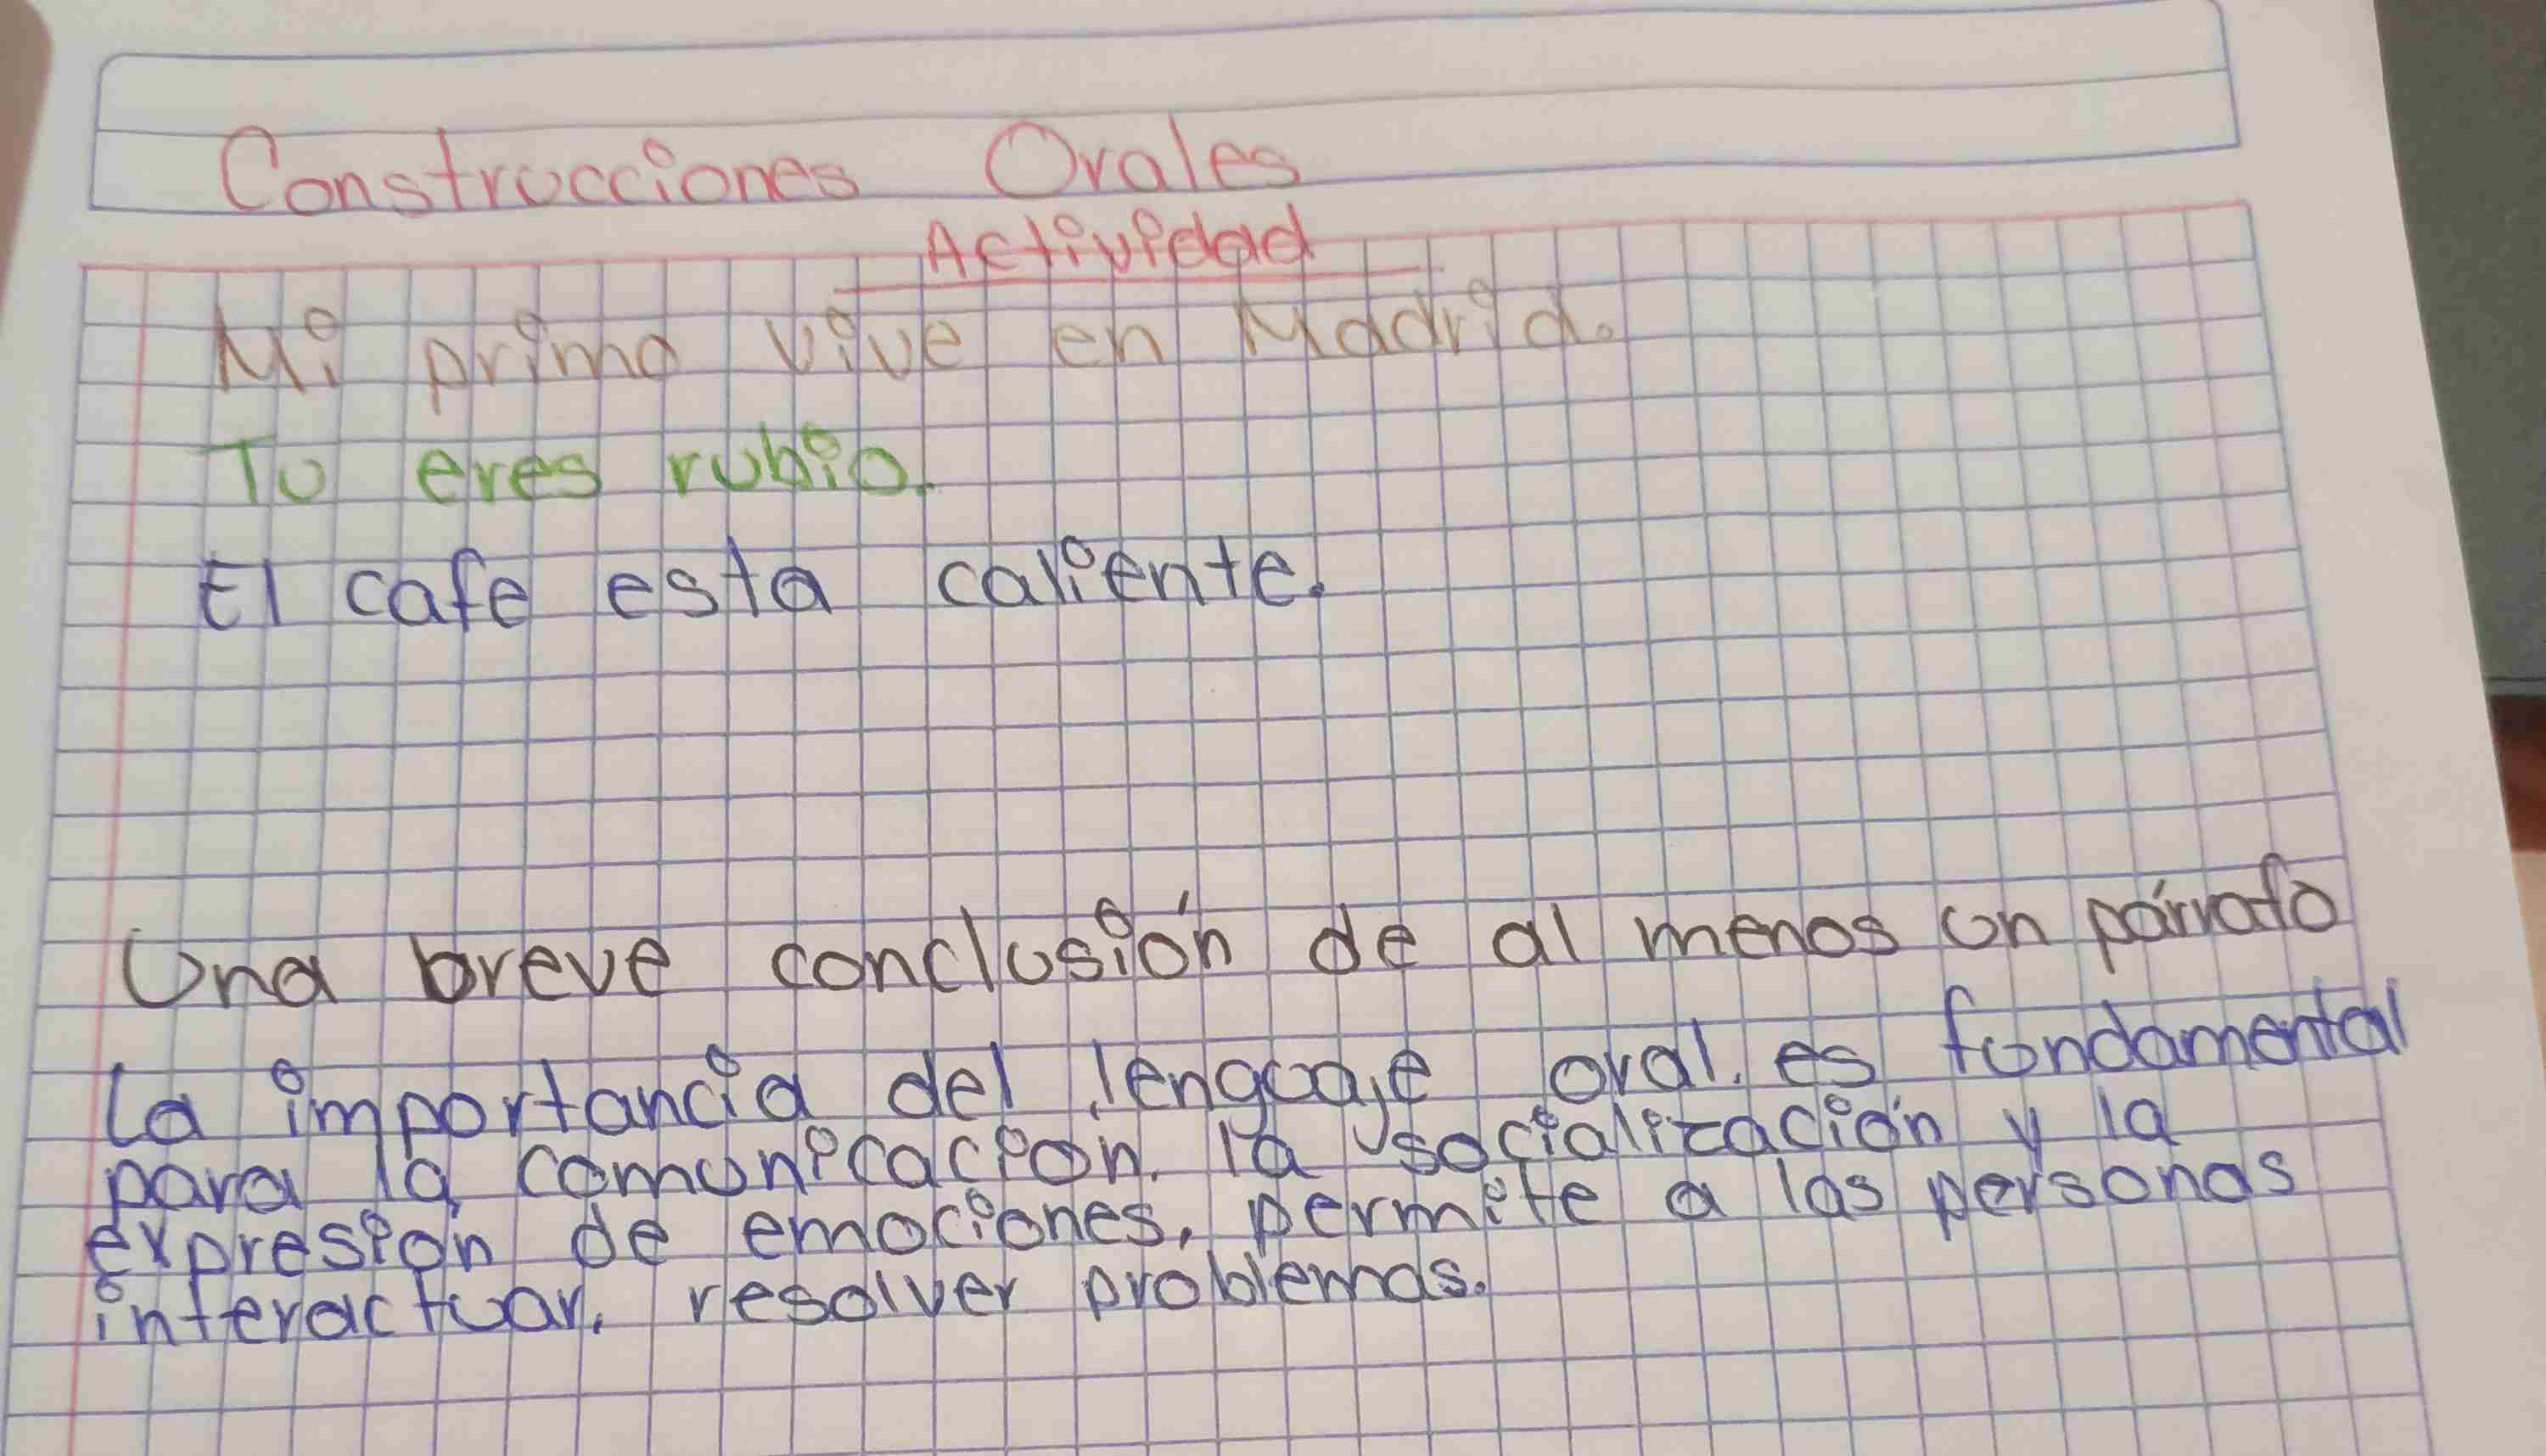 Construcciones Orales
Actividad
Mi primo vive en Madrid.
Tu eres rubio.
El cafe esta caliente.
Una breve conclusión de al menos un párrafo
La importancia del lenguaje oral, es fundamental
para la comunicacion, la socialización y la
expresion de emociones, permite a las personas
interactuar, resolver problemas.